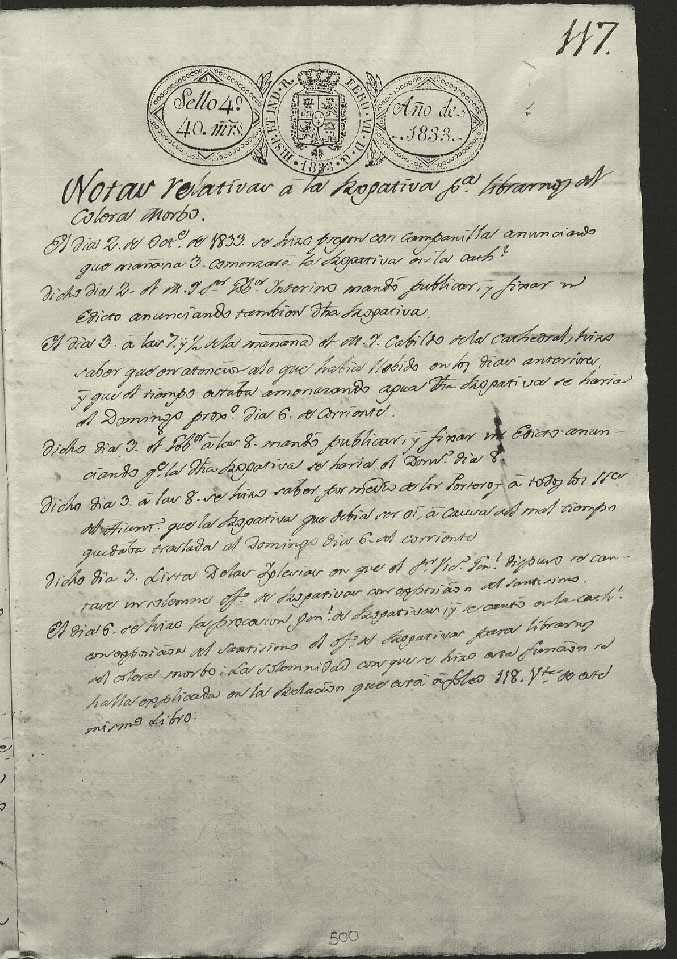 117.
Sello 4º
40. mrs.
HISP. ET IND. R. FERD. VII. D. G. 1833
Año de
1833.
Notas relativas â la Rogativa pª librarnos del
Colera Morbo.
El dia 2. de Octe. de 1833. se hizo pregon con campanillas anunciando
que mañana 3. comenzará la Rogativa en la Cathl.
Dicho dia 2. el M. Y. Sr. Gobor Interino mandó publicar, y fixar un
Edicto anunciando tambien dha Rogativa.
El dia 3. a las 7. y ½ de la mañana el M. Y. Cabildo de la Cathedral, hizo
saber que en atencion a lo que habia llobido en los dias anteriores,
y que el tiempo estaba amenazando agua dha Rogativa se haria
el Domingo proxº dia 6. de Corriente.
Dicho dia 3. el Gobor â las 8. mandó publicar, y fixar un Edicto anun-
ciando qe. la dha Rogativa se haria el Domº dia 6.
Dicho dia 3. â las 8. se hizo saber por medio de los Porteros â todos los Sres
del Ayunt. que la Rogativa que debia ser oi, â causa del mal tiempo
quedaba traslada al Domingo dia 6. del corriente
Dicho dia 3. Lista de las Iglesias en que el Sr. Vicº Genl. dispuso se can-
tase un solemne ofº de Rogativas con exposicion del Santisimo.
El dia 6. se hizo la procesion genl. de Rogativas, y se cantó en la Cathl.
con exposicion del Santisimo el ofº de Rogativas para librarnos
del colera morbo: La solemnidad con que se hizo esta funcion se
halla explicada en la Relacion que está â foleo 118. Vta de este
mismo Libro.
500